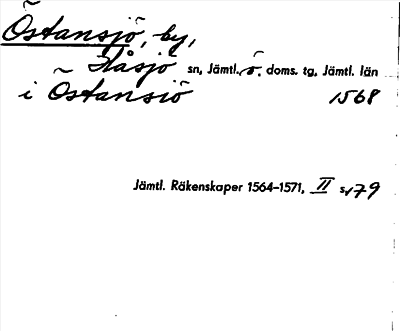 Östansjö, by,
Håsjö sn, Jämtl. ö. doms. tg, Jämtl. län
i Östansiö 1568
Jämtl. Räkenskaper 1564–1571, II s. 179